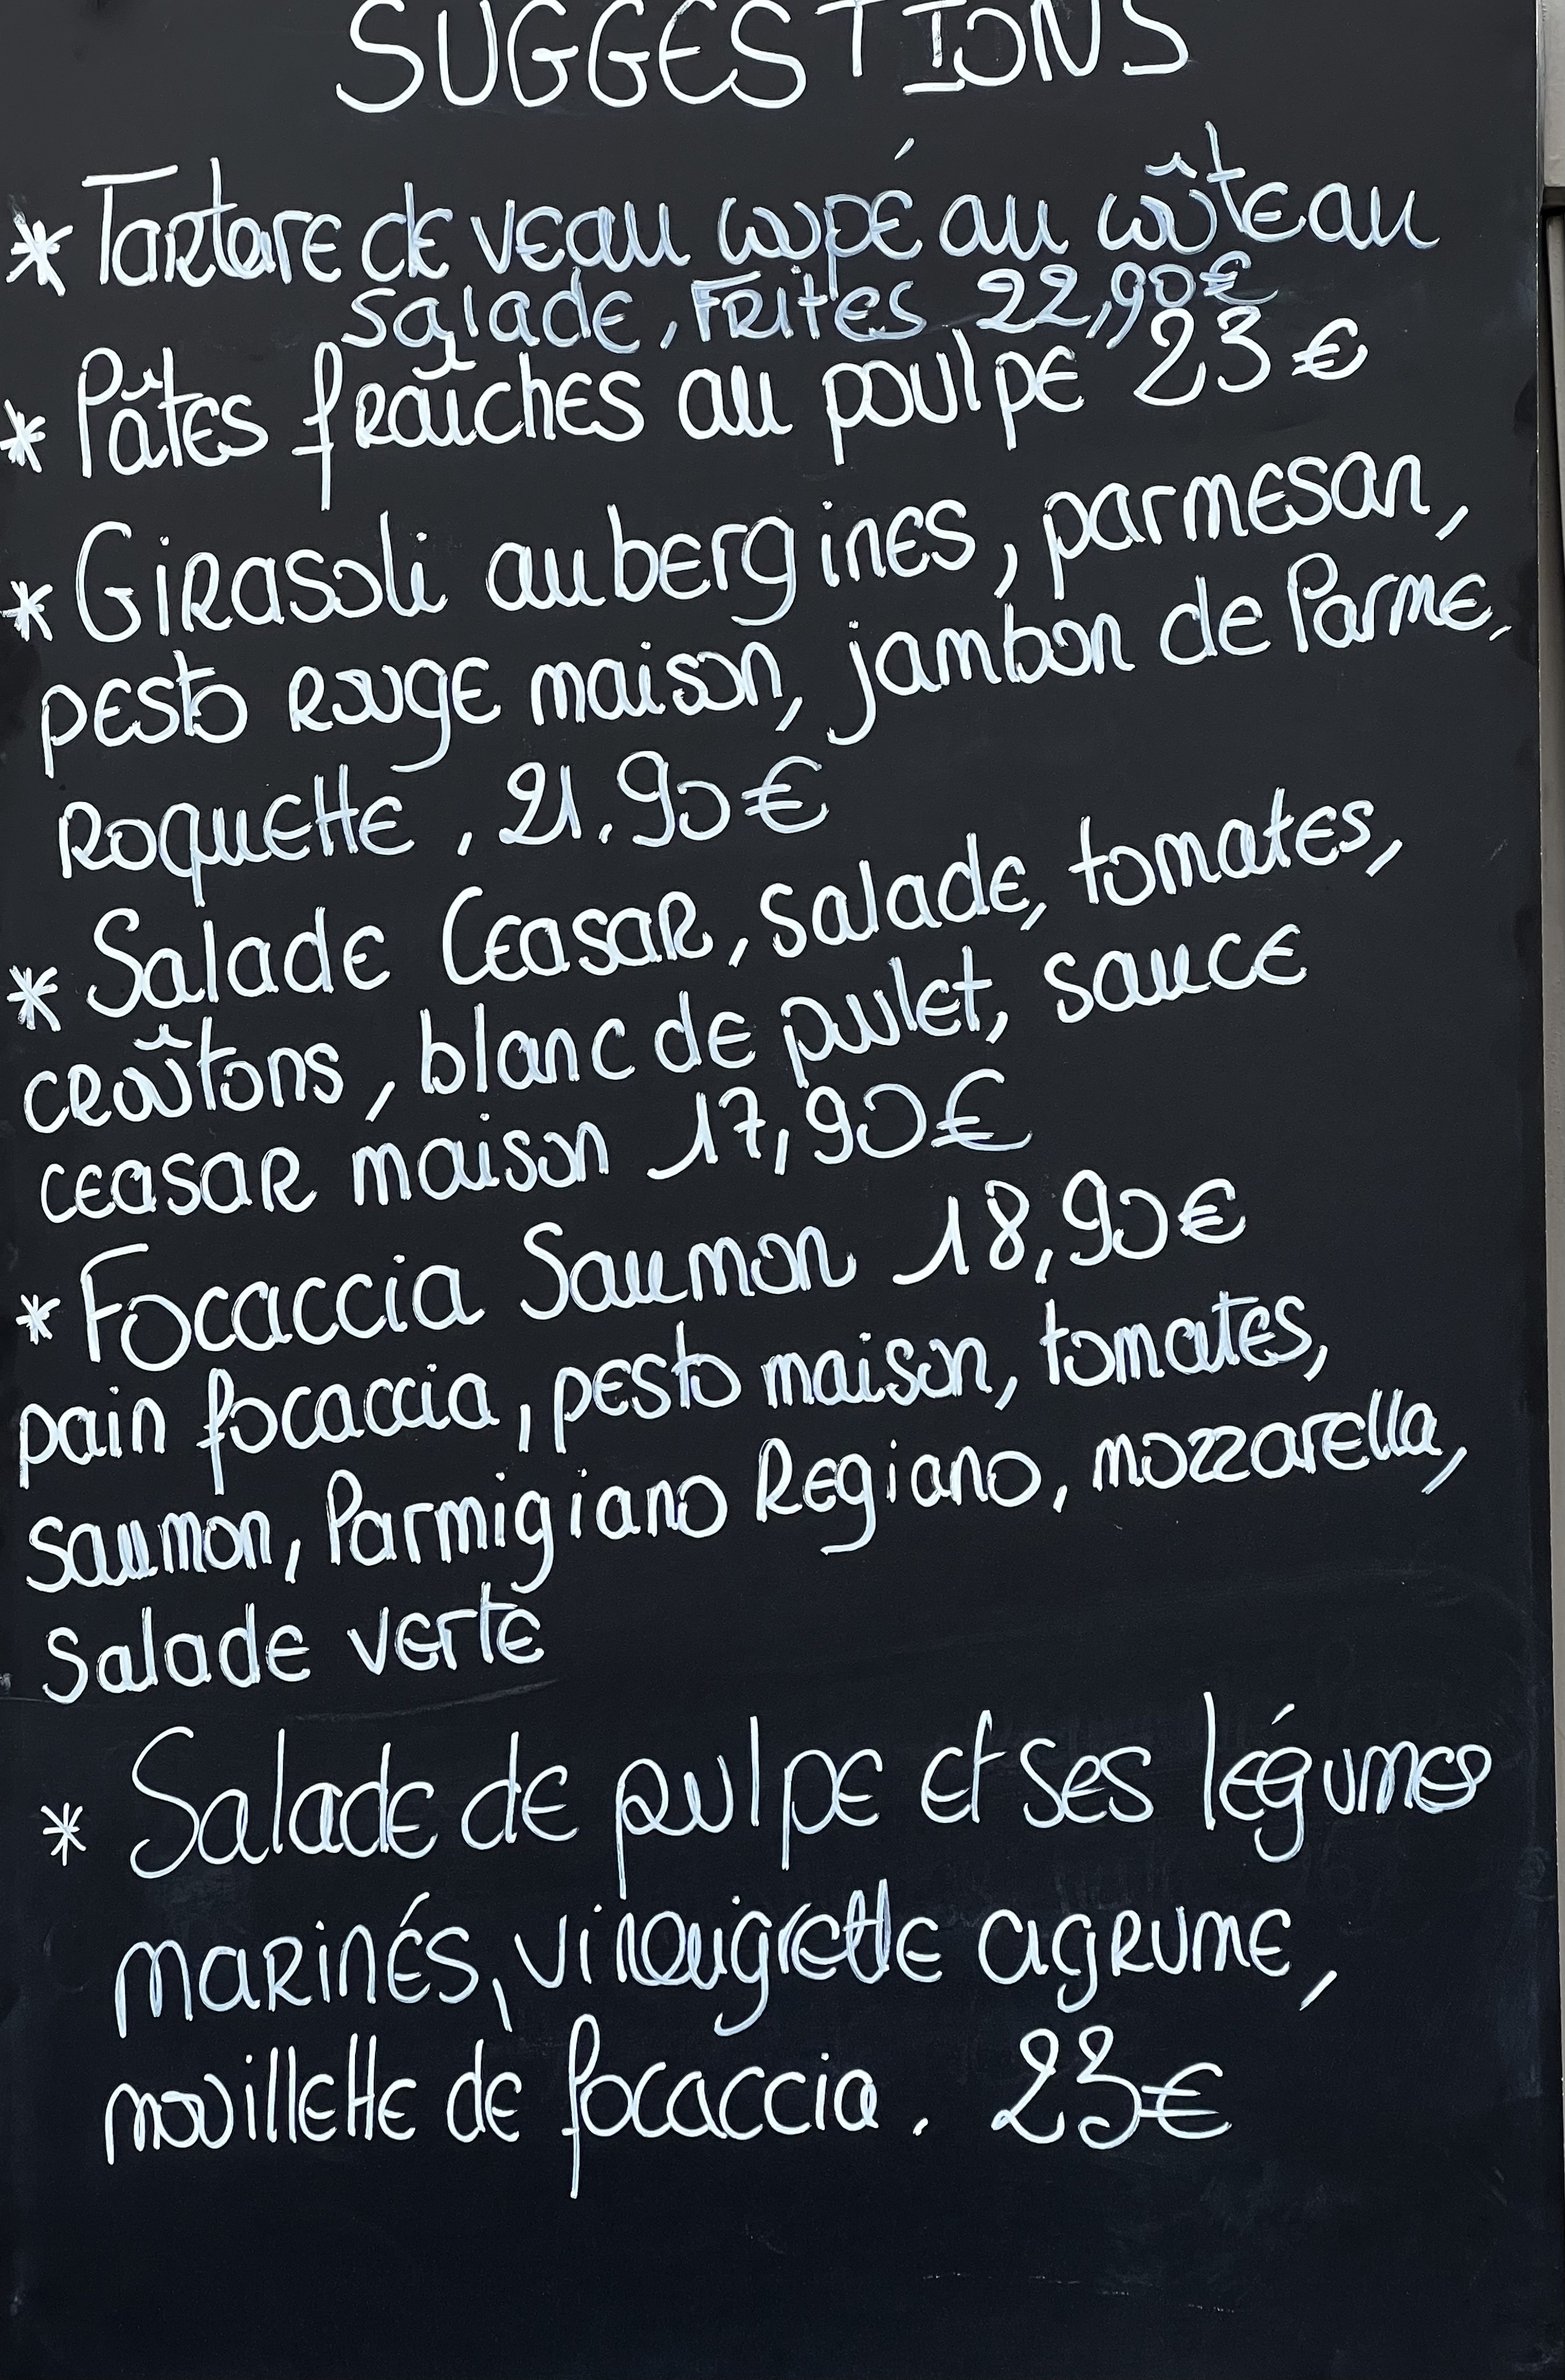 SUGGESTIONS
* Tartare de veau coupé au coûteau
salade, Frites 22,90€
* Pâtes fraîches au poulpe 23€
* Girasoli aubergines, parmesan,
pesto rouge maison, jambon de Parme,
Roquette, 21,90€
* Salade Ceasar, salade, tomates,
croûtons, blanc de poulet, sauce
ceasar maison 17,90€
* Focaccia Saumon 18,90€
pain focaccia, pesto maison, tomates,
saumon, Parmigiano Regiano, mozzarella,
Salade verte
* Salade de poulpe et ses légumes
marinés, vinaigrette agrume,
mouillette de focaccia. 23€